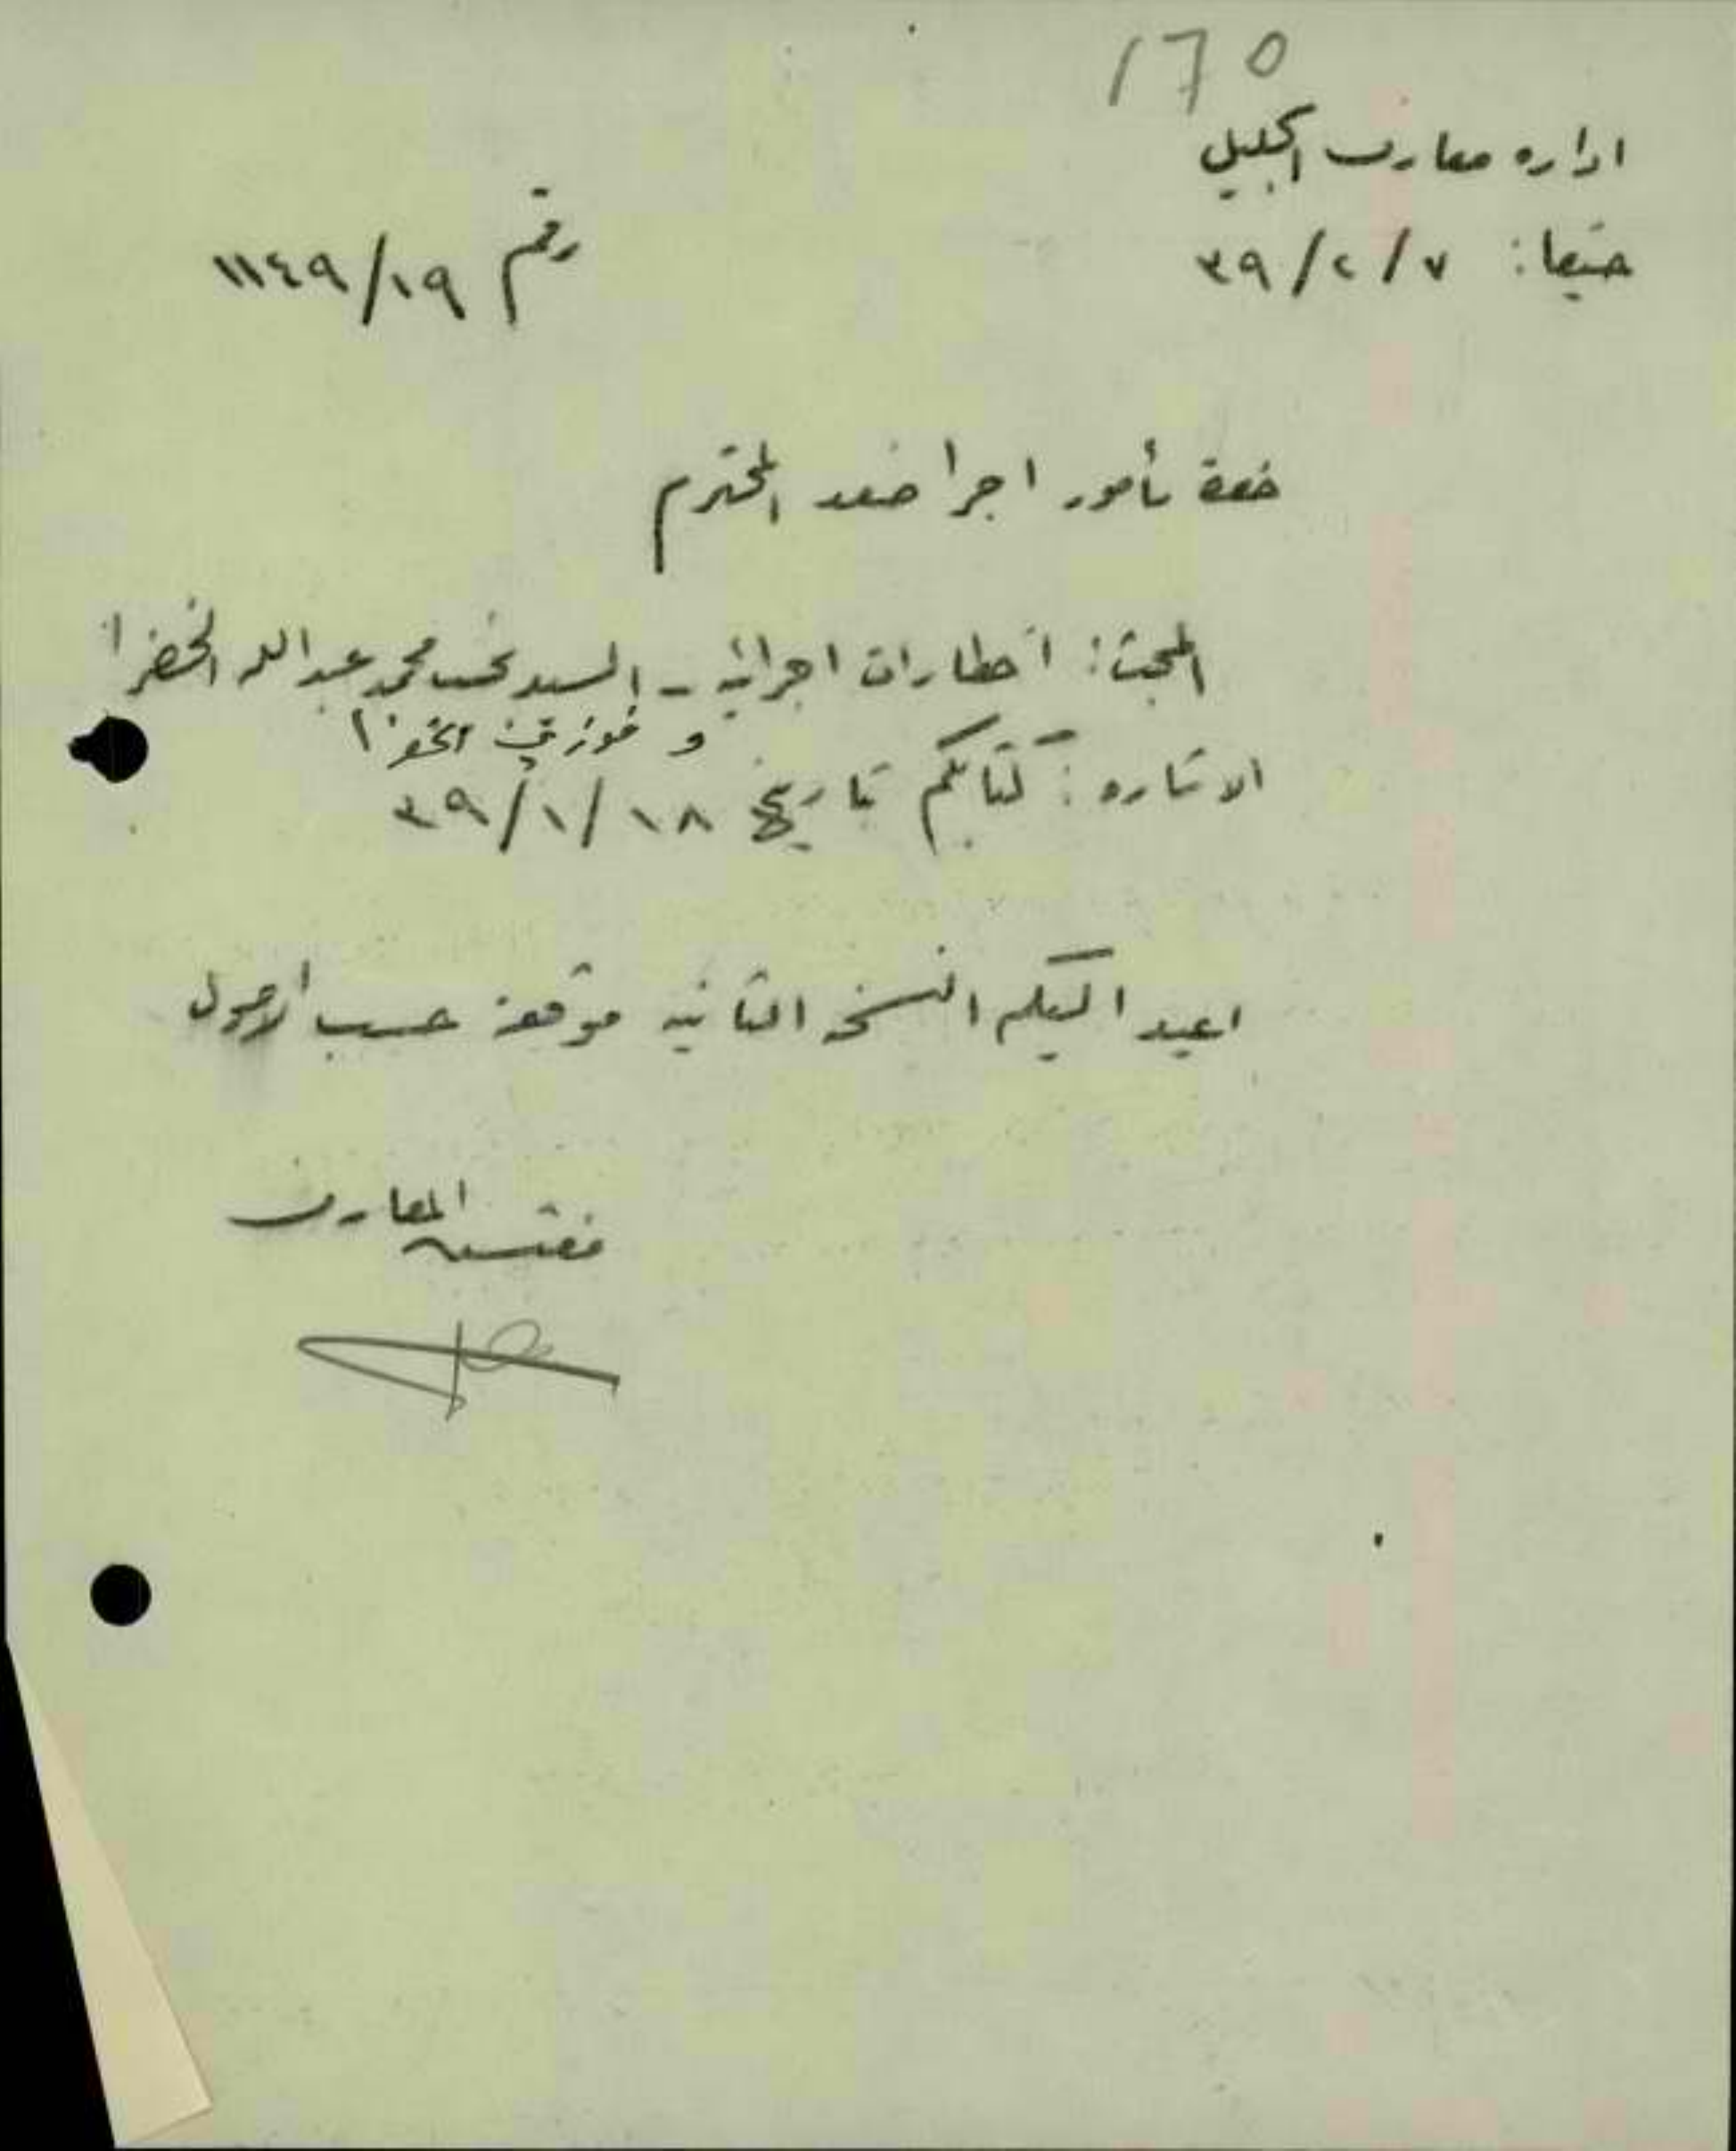 ١٦٥
اداره معارف الجليل
حيفا: ٧/٢/٣٩
رقم ١١٤٩/١٩
حضرة مأمور اجرا صفد المحترم
المبحث: اخطارات اجرائيه - السيد محمد عبد الله الخضرا
و فوزي الخضرا
الاشاره: كتابكم تاريخ ١٨/١/٣٩
اعيد اليكم النسخه الثانيه موقعة حسب الاصول
مفتش المعارف